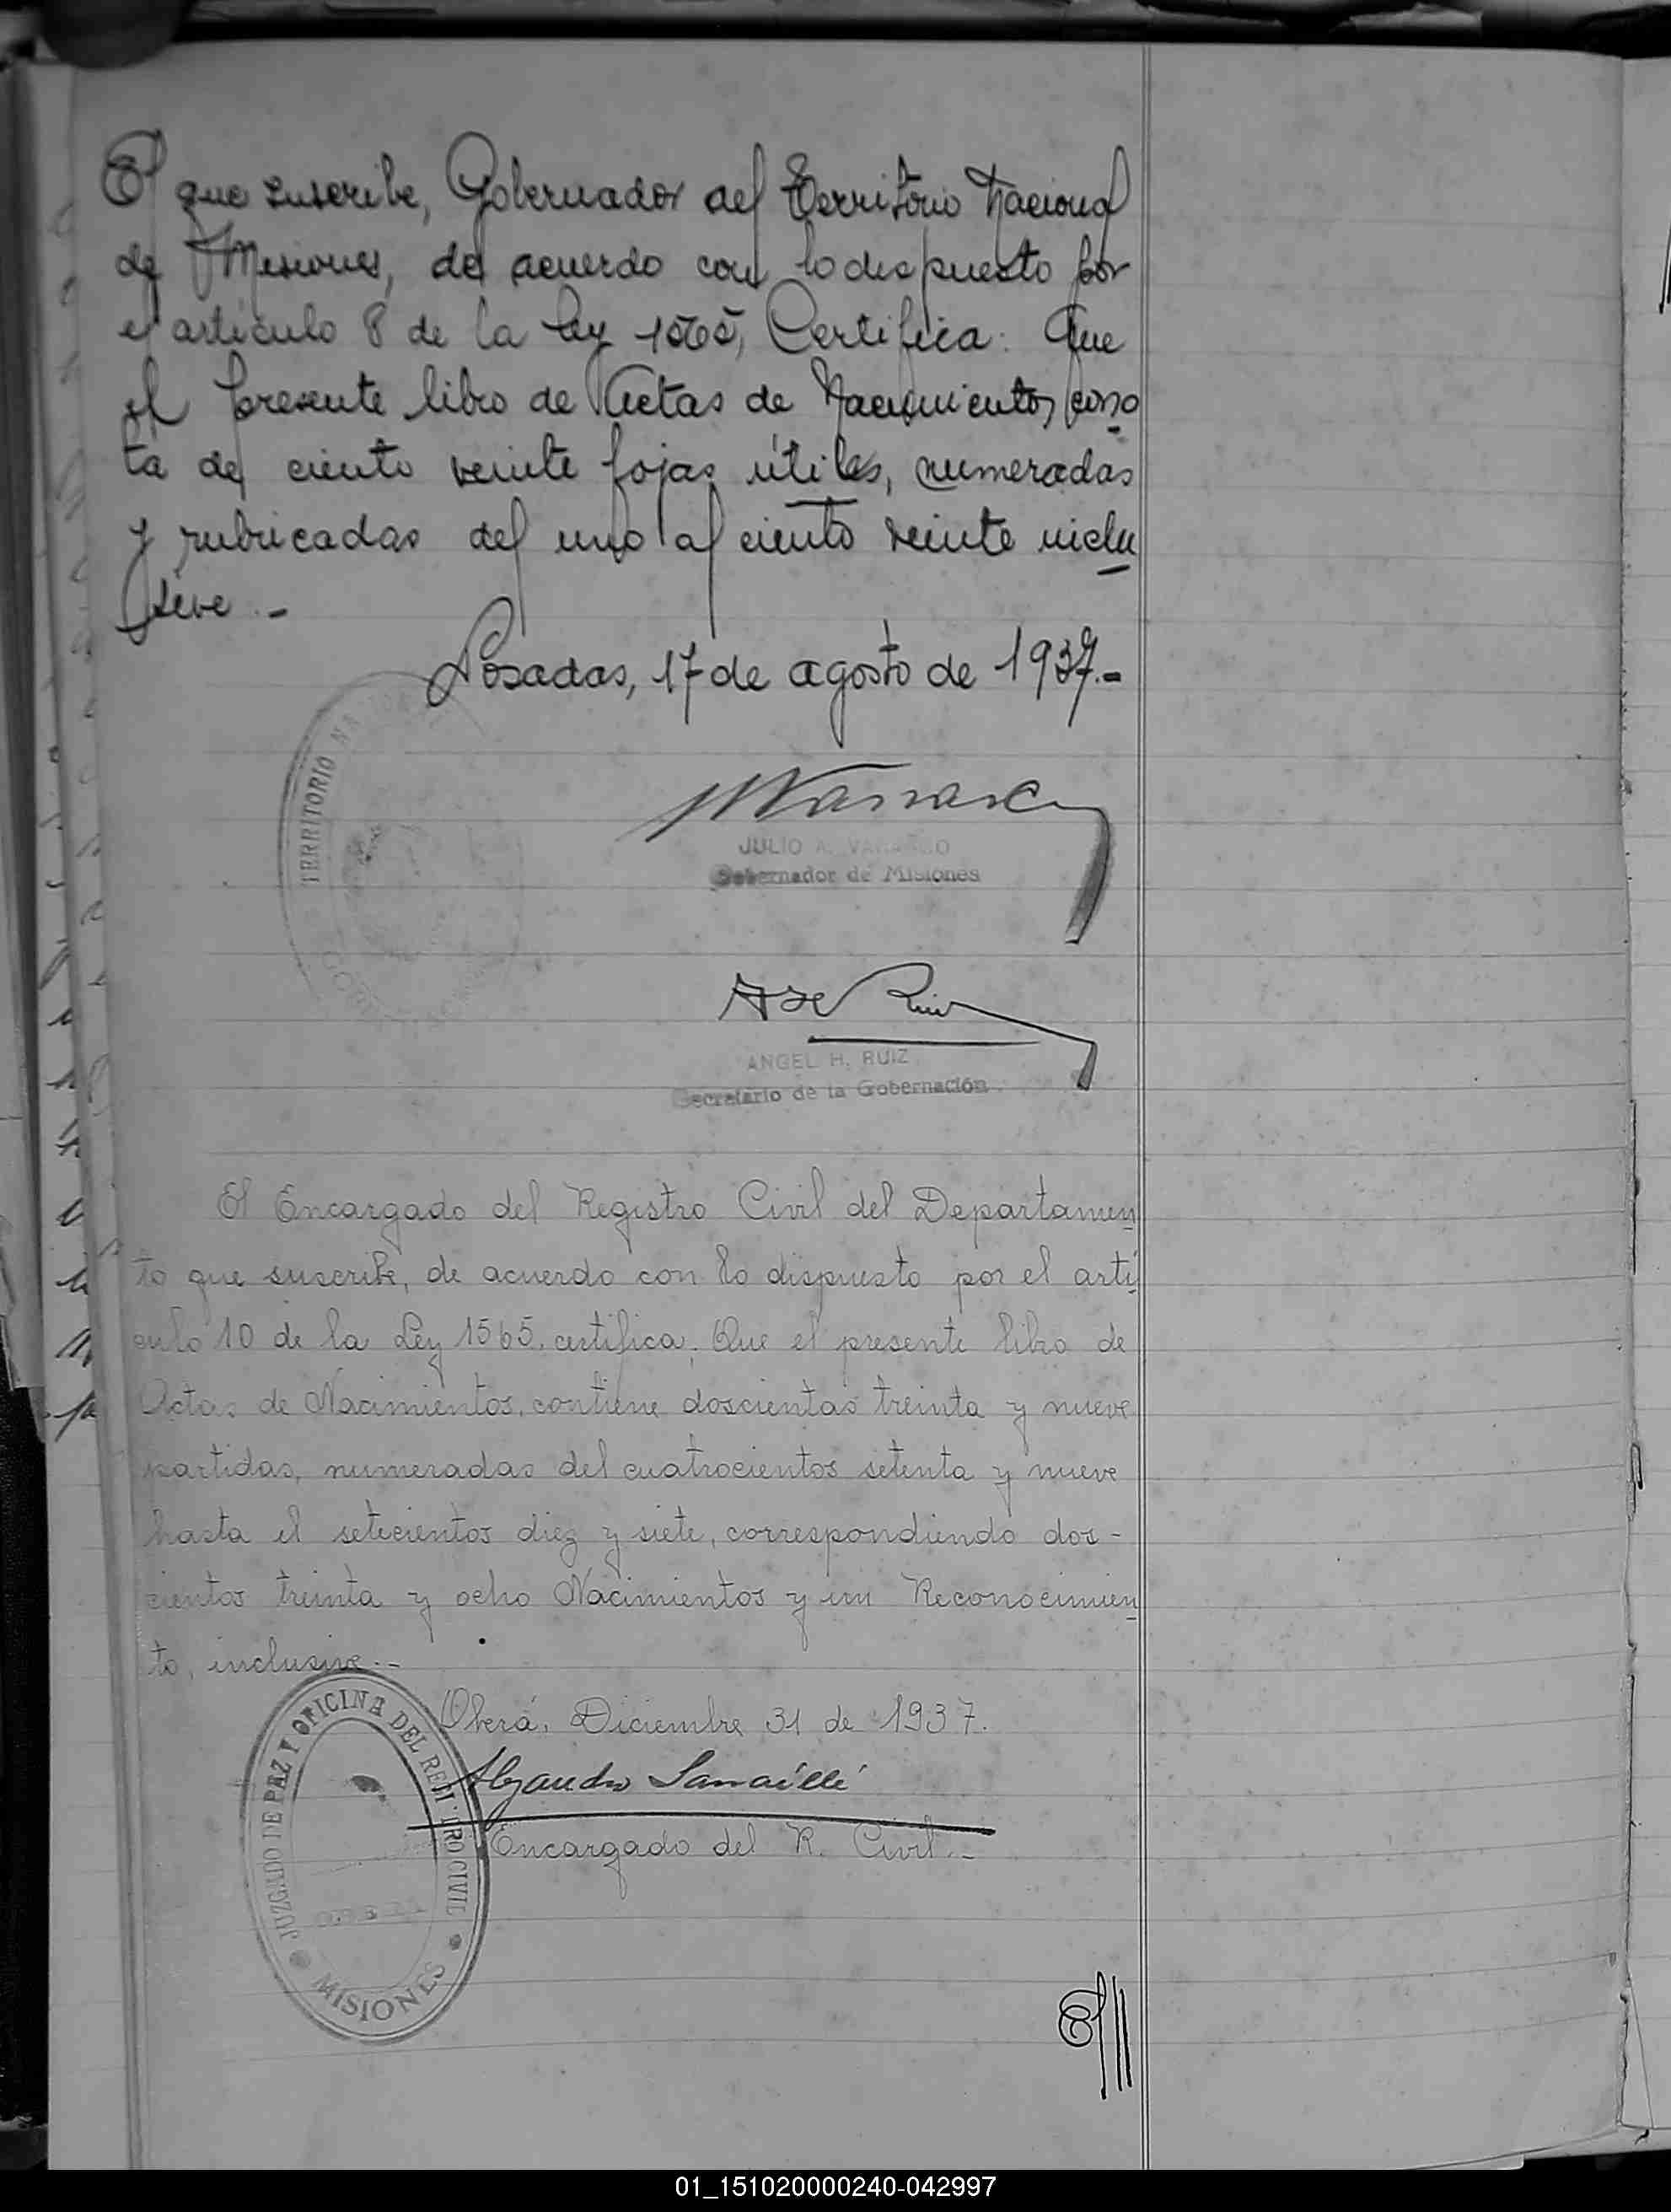 El que suscribe, Gobernador del Territorio Nacional
de Misiones, de acuerdo con lo dispuesto por
el artículo 8 de la Ley 1565, Certifica: Que
el presente libro de Actas de Nacimientos cons
ta de ciento veinte fojas útiles, numeradas
y rubricadas del uno al ciento veinte inclu
sive.-
Posadas, 17 de agosto de 1937.-
TERRITORIO
JULIO A. VANASCO
Gobernador de Misiones
ANGEL H. RUIZ
Secretario de la Gobernación
El Encargado del Registro Civil del Departamen
to que suscribe, de acuerdo con lo dispuesto por el artí
culo 10 de la Ley 1565, certifica: Que el presente libro de
Actas de Nacimientos, contiene doscientas treinta y nueve
partidas, numeradas del cuatrocientos setenta y nueve
hasta el setecientos diez y siete, correspondiendo dos-
cientos treinta y ocho Nacimientos y un Reconocimien
to, inclusive.-
Oberá, Diciembre 31 de 1937.
Alejandro
Encargado del R. Civil.-
JUZGADO DE PAZ Y OFICINA DEL REGISTRO CIVIL
MISIONES
01_151020000240-042997